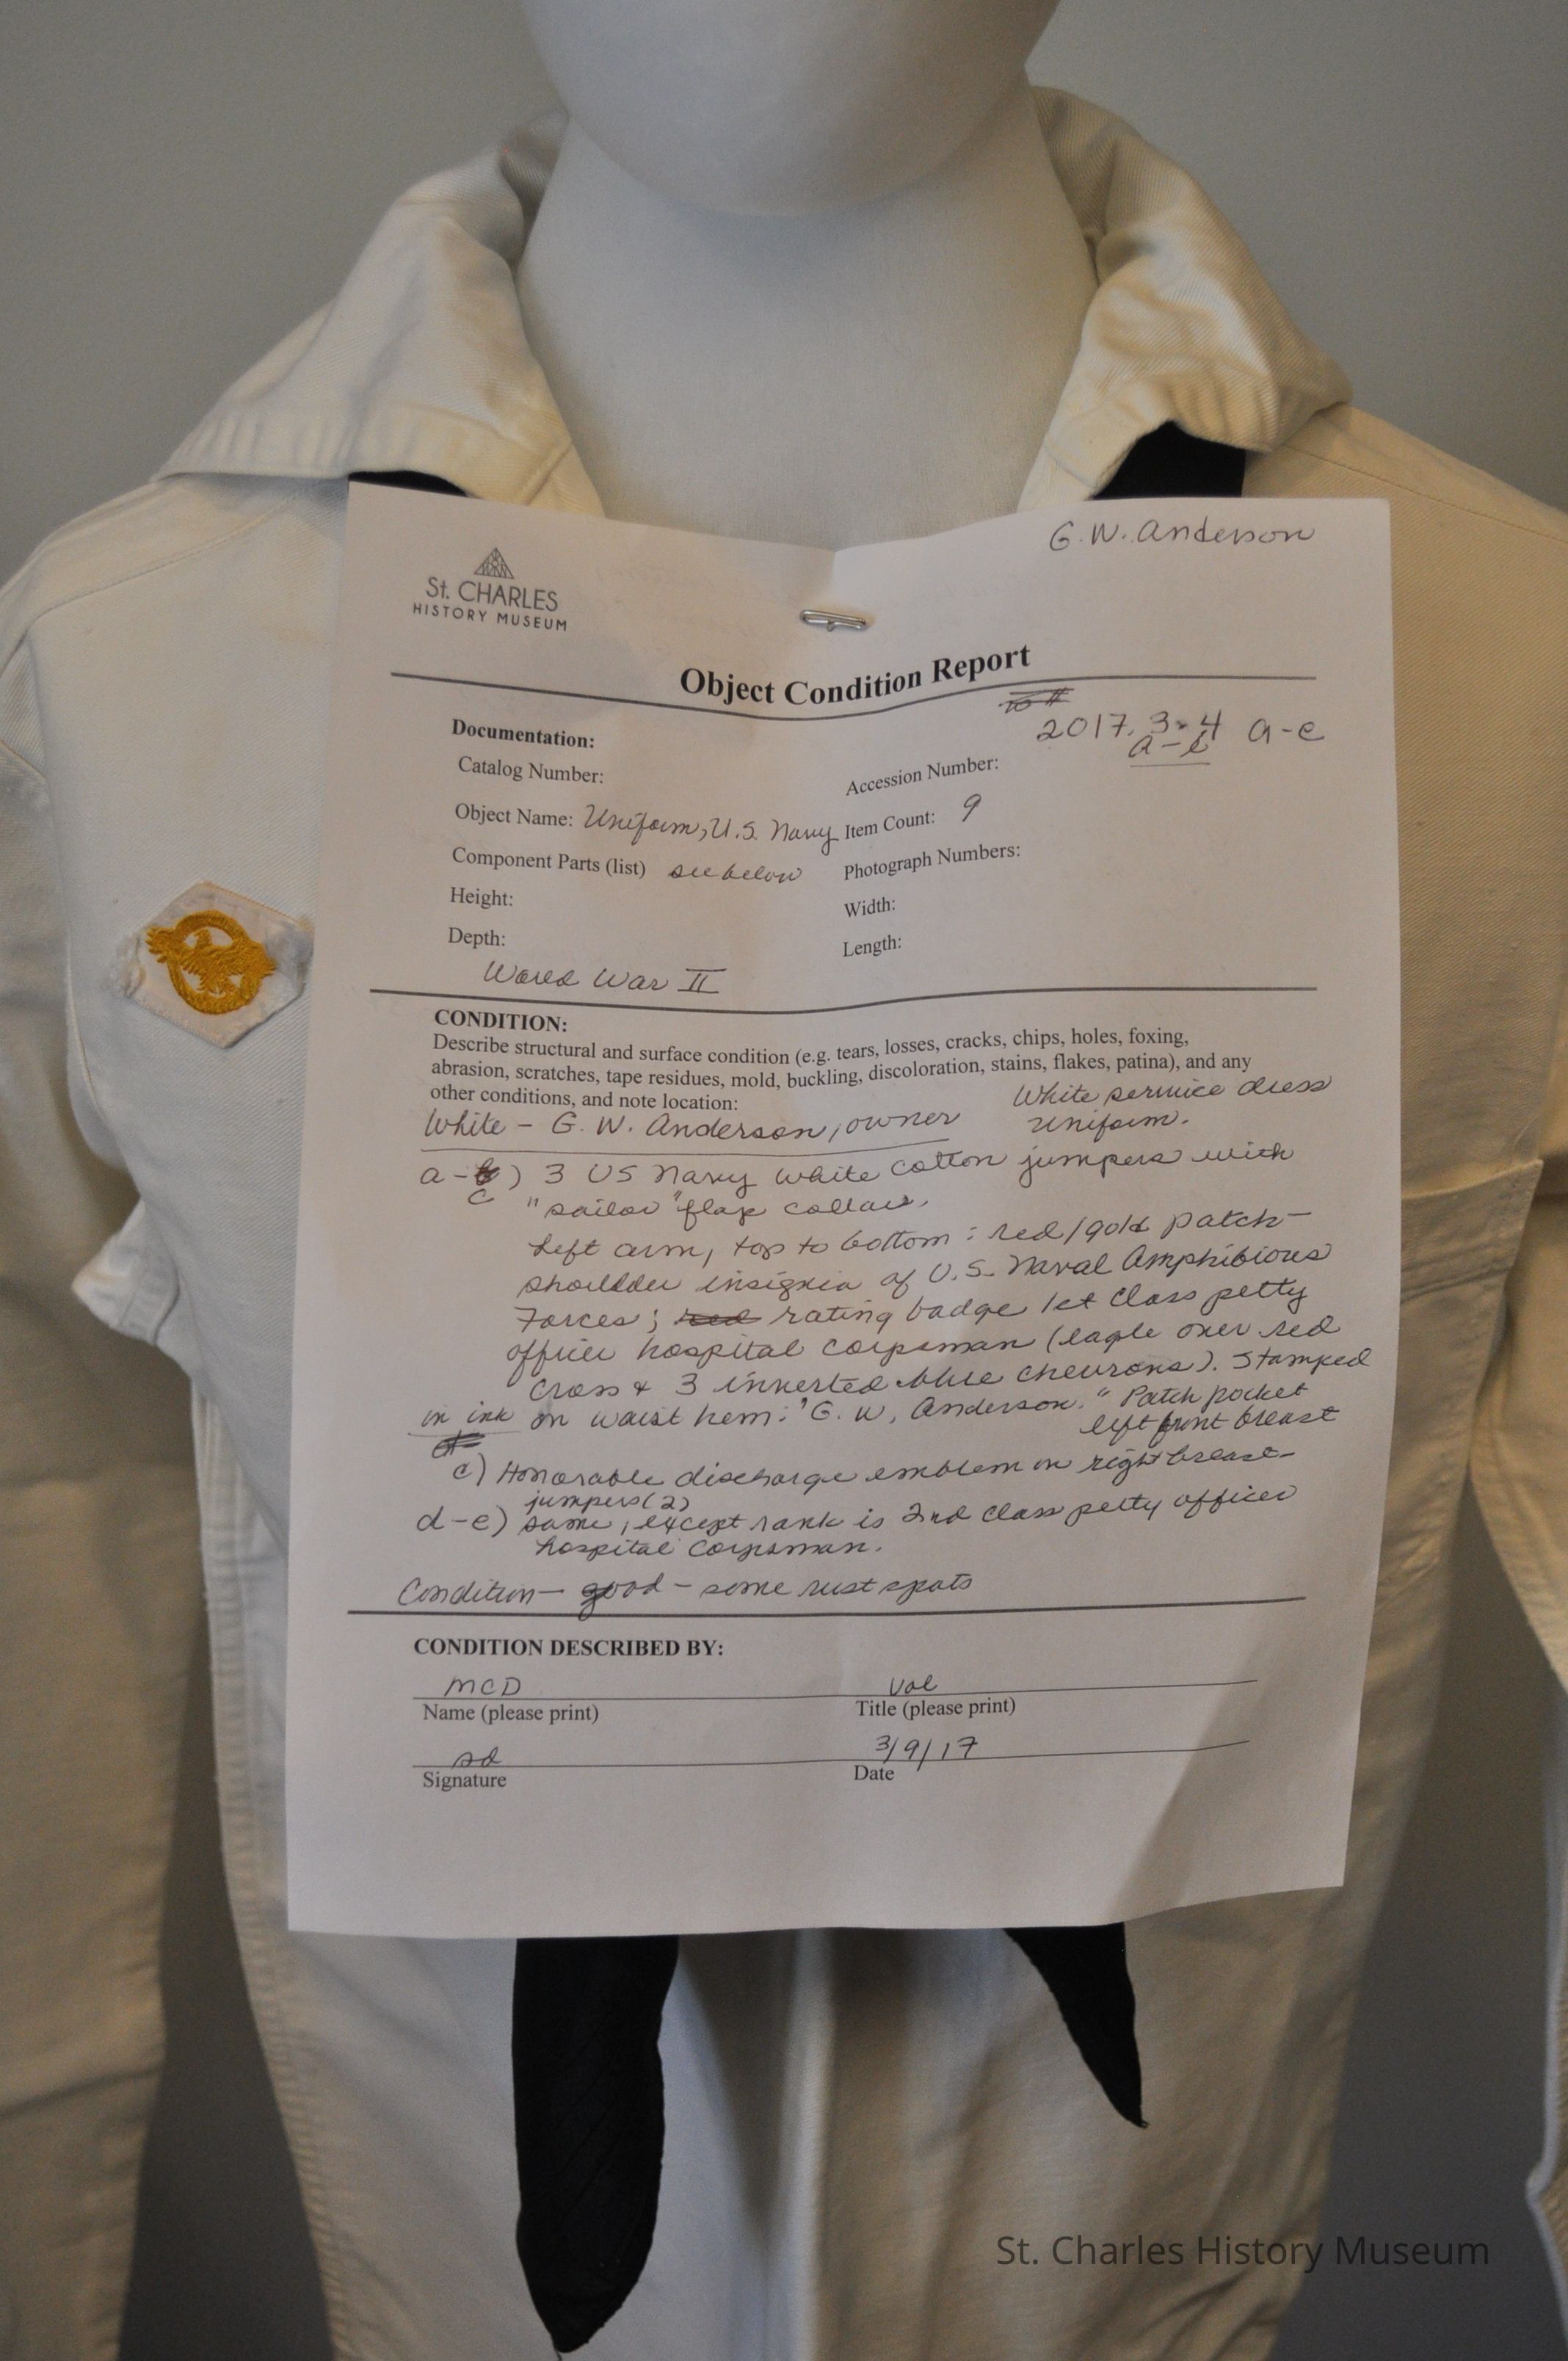 G. W. Anderson
St. CHARLES
HISTORY MUSEUM
Object Condition Report
2017.3.4 a-e
a-e
Documentation:
Catalog Number:
Accession Number:
Object Name: Uniform, U.S. Navy
Item Count: 9
Component Parts (list) see below
Photograph Numbers:
Height:
Width:
Depth:
Length:
World War II
CONDITION:
Describe structural and surface condition (e.g. tears, losses, cracks, chips, holes, foxing,
abrasion, scratches, tape residues, mold, buckling, discoloration, stains, flakes, patina), and any
other conditions, and note location:
White service dress
uniform.
White - G. W. Anderson, owner
a-c) 3 US Navy white cotton jumpers with
"sailor" flap collar.
Left arm, top to bottom: red/gold patch-
shoulder insignia of U.S. Naval Amphibious
Forces; rating badge 1st Class petty
officer hospital corpsman (eagle over red
cross & 3 inverted blue chevrons). Stamped
in ink on waist hem: "G. W. Anderson." Patch pocket
left front breast
c) Honorable discharge emblem on right breast
jumpers (2)
d-e) same, except rank is 2nd Class petty officer
hospital corpsman.
Condition - good - some rust spots
CONDITION DESCRIBED BY:
MCD
Vol
Name (please print)
Title (please print)
3/9/17
Signature
Date
St. Charles History Museum